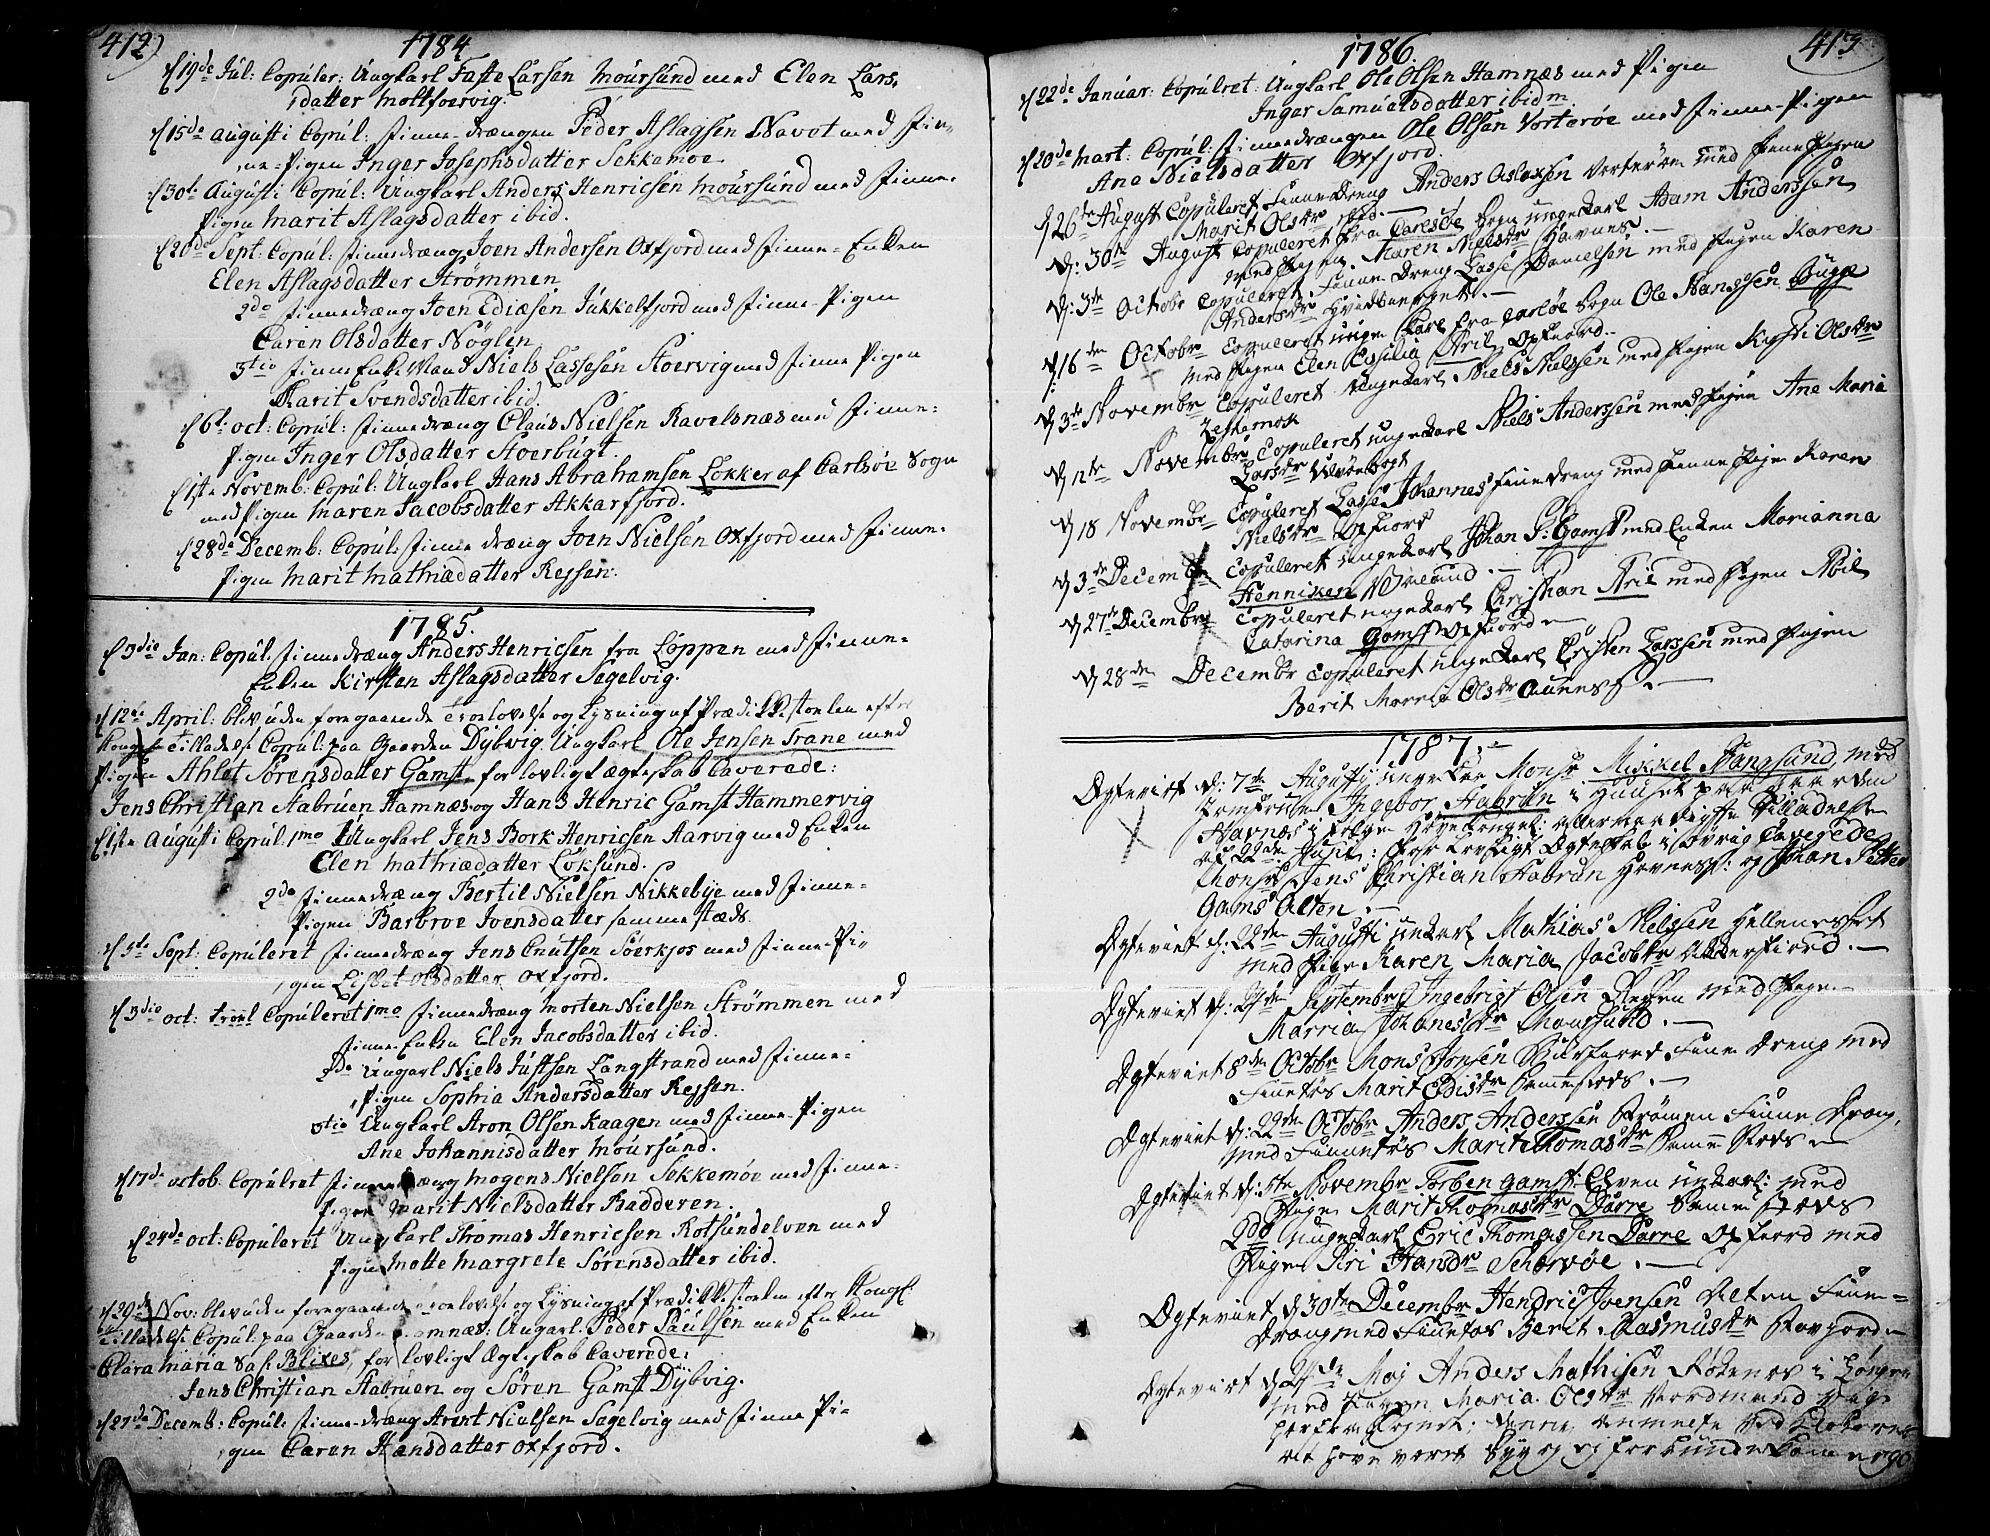 412)
1784
d 19de Jul: Copuler: Ungkarl Faste Larsen Moursund med Elen Lars-
datter Mollfoervig.
d 15de Augusti Copúl: Finne-Drængen Peder Aslagsen Navot med Fin-
ne-Pigen Inger Josephsdatter Sekkemoe
d 30te Augusti Copúl: Ungkarl Anders Henricsen Moúrsúnd med Finne-
Pigen Marit Aslagsdatter ibid.
d 20de Sept: Copúl: Finnedræng Joen Andersen Oxfjord med Finne-Enken
Elen Aslagsdatter Strømmen
2do Finnedræng Joen Ediæsen Jökkelfjord med Finne-Pigen
Caren Olsdatter Nöglen
3tio Finne Enke Mand Niels Lassesen Stoervig med Finne Pigen
Marit Svendsdatter ibid.
d 6te oct: Copúl: Finnedræng Claús Nielsen Ravelsnæs med Finne-
Pigen Inger Olsdatter Stoerbúgt.
d 1ste Novemb: Copúl: Ungkarl Hans Abrahamsen Lokker af Carlsøe Sogn
med Pigen Maren Jacobsdatter Akkarfjord.
d 28de Decemb: Copúl: Finne dræng Joen Nielsen Oxfjord med Finne-
Pigen Marit Mathiædatter Rejsen.
1785.
d 3die Jan: Copúl: Finnedræng Anders Henricsen fra Loppen med Finne-
Enken Kirsten Aslagsdatter Sagelvig.
d 12te April: blev uden foregaaende Troelovelse og Lysning af Prædikkestoelen efter
Kongel: Tilladelse Copúl: paa Gaarden Dybvig Ungkarl Ole Jensen Trane med
Pigen Ahlet Sørensdatter Gamst, for lovligt Ægteskab Caverede:
Jens Christian Stabrúen Hamnæs og Hans Henric Gamst Hammervig
d 1ste Augusti Copúl: 1mo Ungkarl Jens Bork Henricsen Aarvig med Enken
Elen Mathiædatter Löksúnd.
2do Finnedræng Bertil Nielsen Nikkebÿe med Finne-
Pigen Barbroe Ivensdatter sammestæds
Sept: Copúleret Finnedræng Jens Cnútsen Söerkjos med Finne Pi-
gen Lisbet Olsdatter Oxfjord.
d 3die oct: Copúleret 1mo Finnedræng Morten Nielsen Strömmen med
Finne-Enken Elen Jacobsdatter ibid.
2do Ungkarl Niels Jústsen Langstrand med Finne-
Pigen Sophia Andersdatter Rejsen.
3tio Ungkarl Aron Olsen Kaagen med Finne-Pigen
Ane Johannisdatter Moúrsúnd.
d 17de octob: Copúlret Finnedræng Mogens Nielsen Sekkemöe med Finne-
Pigen Marit Nielsdatter Badderen.
d 24de oct: Copúleret Ungkarl Thomas Henricsen Rotsúndelven med
Pigen Mette Margrete Sørensdatter ibid.
d 20de Nov: blev uden foregaaende Troelovelse og Lysning af Prædikkestoelen efter Kongl:
Tilladelse Copúl: paa Gaarden Hamnæs: Ungkarl: Peder Paúlsen med Enken
Clara Maria Sal: Blixes, for lovligt Ægteskab Caverede:
Jens Christian Stabrúen og Sören Gamst Dÿbvig.
d 27de Decemb: Copúl: Finne-dræng Arent Nielsen Sagelvig med Finne Pi-
gen Caren Hansdatter Oxfjord.
413
1786
d 22de Januar: Copúlret: Ungkarl Ole Olsen Hamnæs med Pigen
Inger Samúelsdatter ibidm
d 20de Mart: Copúl: Finnedrængen Ole Olsen Vorterøe med Finne-Pigen
Ane Nielsdatter Oxfjord.
d 26de August Copuleret Finne dreng Anders Aslaxsen Vorterøen med Finne Pigen
Marit Olsdr ibid.
d: 30te August Copuleret fra Carlsøe Sogn ungekarl Adam Anderssen
med Pigen Maren Nielsdr Havnes.
d: 3de Octobr Copuleret Finne Dreng Lasse Danielsen med Pigen Karen
Andersdr Hvidberget.
d 16den Octobr Copuleret unge Karl fra Carlsøe Sogn Ole Hanssen Búgge
med Pigen Elen Cesilia Aril Oxfiord.
d 3de Novembr Copuleret Ungekarl Niels Nielssen med Pigen Kirsti Olsdr
Zekkemoe
d 12te Novembr Copuleret ungekarl Niels Anderssen med Pigen Ane Maria
Larsdr
d 18 Novembr Copuleret Lasse Johannes Finnedreng med Finne Pige Karen
Nielsdr Oxfiord
d 3de Decembr Copuleret ungekarl Johan P: Gamst med Enken Marianna
Henniken
d 27de Decembr Copuleret ungekarl Christian Aril med Pigen Abil
Catarina Gamst Oxfiord
d 28de Decembr Copuleret ungekarl Cristen Larssen med Pigen
Berit Marria Olsdr
1787.
Ægteviet d: 7de Augusti ungekar Monsr Mikkel Stangsund, med
Jomfruen Ingebor Stabrun i Huuset paa Gaarden
Havnæs i følge Høye Kongel: allernaadigste Tilladelse
af 22de Junii: for lovligt Ægteskab i øvrig Caverede
Monsr Jens Christian Stabrun Havnes: og Johan Petter
Gams Alten.
Ægteviet d: 22de Augusti unkarl Mathias Nielssen Hellenesset
med Pige Karen Maria Jacobsdr Akkerfiord.
Ægteviet d: 24de Septembr Ingebrigt Olsen med Pige
Marria Johanesdr Moursund.
Ægteviet 8de Octobr Mons Jonsen Finne dreng med
Finetøs Marit Edisdr samesteds.
Ægteviet d: 22de Octobr Anders Anderssen Strømen Finne Dreng,
med Finnetøs Marit Thomasdr Same Steds
Ægteviet d: 5te Novembr Torben Gamst Elven unkarl: med
Pigen Marit Thomasdr Dárre Same Steds
2do ungekarl Eric Thomassen Darre Oxfiord med
Pigen Siri Hansdr Schærvøe.
Ægteviet d 30te Decembr Hendric Joensen Alten Finne-
Dreng med Finetøs Berit Rasmusdr
Ægteviet d 24de Maj Anders Mathisen Rødenes i
med Pigen Maria Olsdr